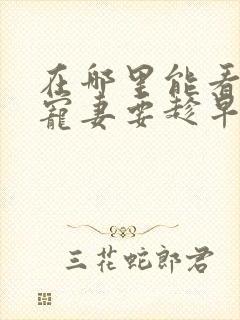 在哪里能看
宠妻要趁早
三花蛇郎君